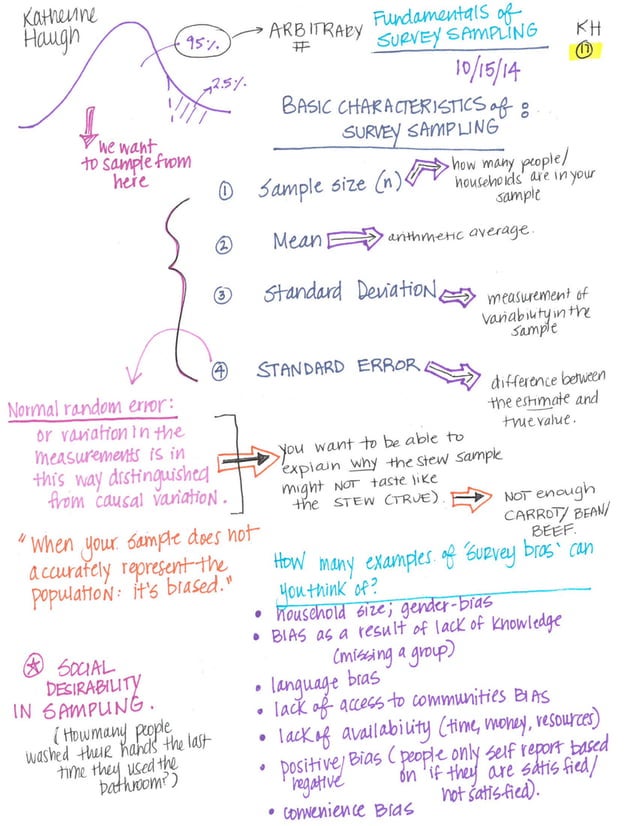 Katherine
Haugh
95%
ARBITRARY
#
2.5%
Fundamentals of
SURVEY SAMPLING
KH
17
10/15/14
we want
to sample from
here
BASIC CHARACTERISTICS of:
SURVEY SAMPLING
① Sample size (n)
how many people/
households are in your
sample
② Mean
arithmetic average.
③ Standard Deviation
measurement of
variability in the
sample
④ STANDARD ERROR
difference between
the estimate and
true value.
Normal random error:
or variation in the
measurements is in
this way distinguished
from causal variation.
you want to be able to
explain why the stew sample
might NOT taste like
the STEW (TRUE).
NOT enough
CARROT/BEAN/
BEEF.
"When your sample does not
accurately represent the
population: it's biased."
How many examples of 'survey bias' can
you think of?
• household size; gender-bias
• BIAS as a result of lack of knowledge
(missing a group)
• language bias
• lack of access to communities BIAS
• lack of availability (time, money, resources)
• positive/ Bias (people only self report based
negative on if they are satisfied/
not satisfied).
• convenience Bias
SOCIAL
DESIRABILITY
IN SAMPLING.
(How many people
washed their hands the last
time they used the
bathroom?)